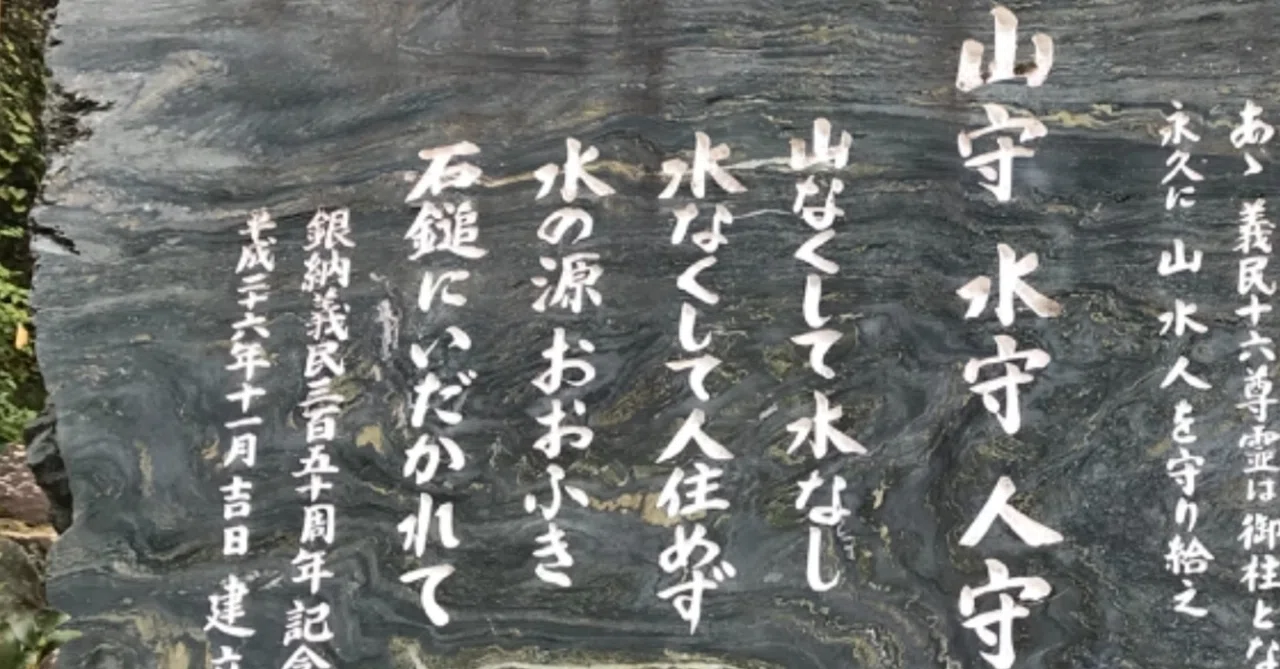 あゝ 義民十六尊霊は御柱とな
永久に 山水人を守り給え
山守 水守 人守
山なくして水なし
水なくして人住めず
水の源 おおふき
石鎚にいだかれて
銀納義民三百五十周年記念
平成二十六年十一月吉日 建立